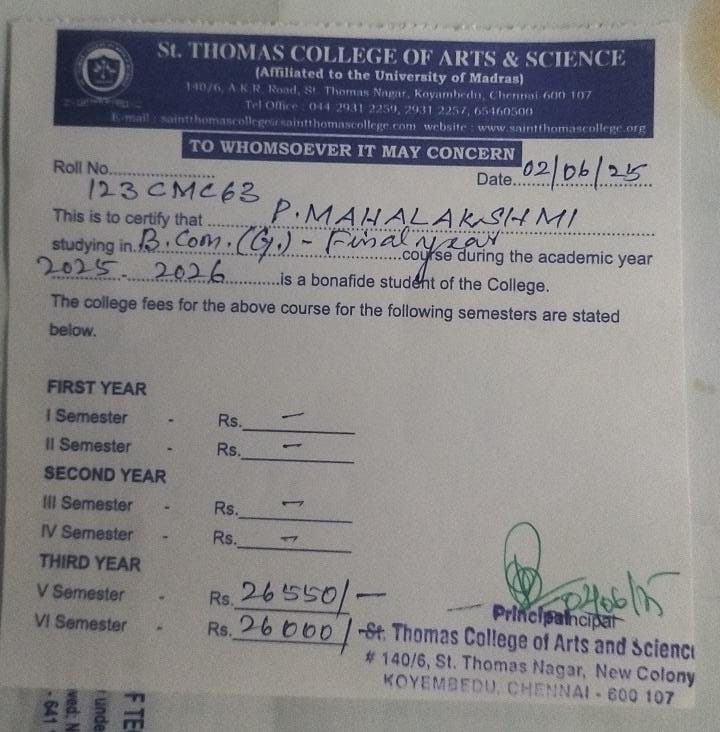 St. THOMAS COLLEGE OF ARTS & SCIENCE
(Affiliated to the University of Madras)
140/6, A.K.R. Road, St. Thomas Nagar, Koyambedu, Chennai-600 107
Tel Office : 044-2931 2259, 2931 2257, 65460500
E-mail : saintthomascollege@saintthomascollege.com website : www.saintthomascollege.org
TO WHOMSOEVER IT MAY CONCERN
Roll No.................... Date...02/06/25
123CMC63
This is to certify that ........P.MAHALAKSHMI
studying in.B.Com.(G.) - Final year...course during the academic year
2025 - 2026............is a bonafide student of the College.
The college fees for the above course for the following semesters are stated
below.
FIRST YEAR
I Semester - Rs. —
II Semester - Rs. —
SECOND YEAR
III Semester - Rs. —
IV Semester - Rs. —
THIRD YEAR
V Semester - Rs. 26550/—
VI Semester - Rs. 26000/-
02/06/25
Principal
Principal
St. Thomas College of Arts and Science
# 140/6, St. Thomas Nagar, New Colony
KOYEMBEDU, CHENNAI - 600 107
F TE
unde
ved. N
- 641